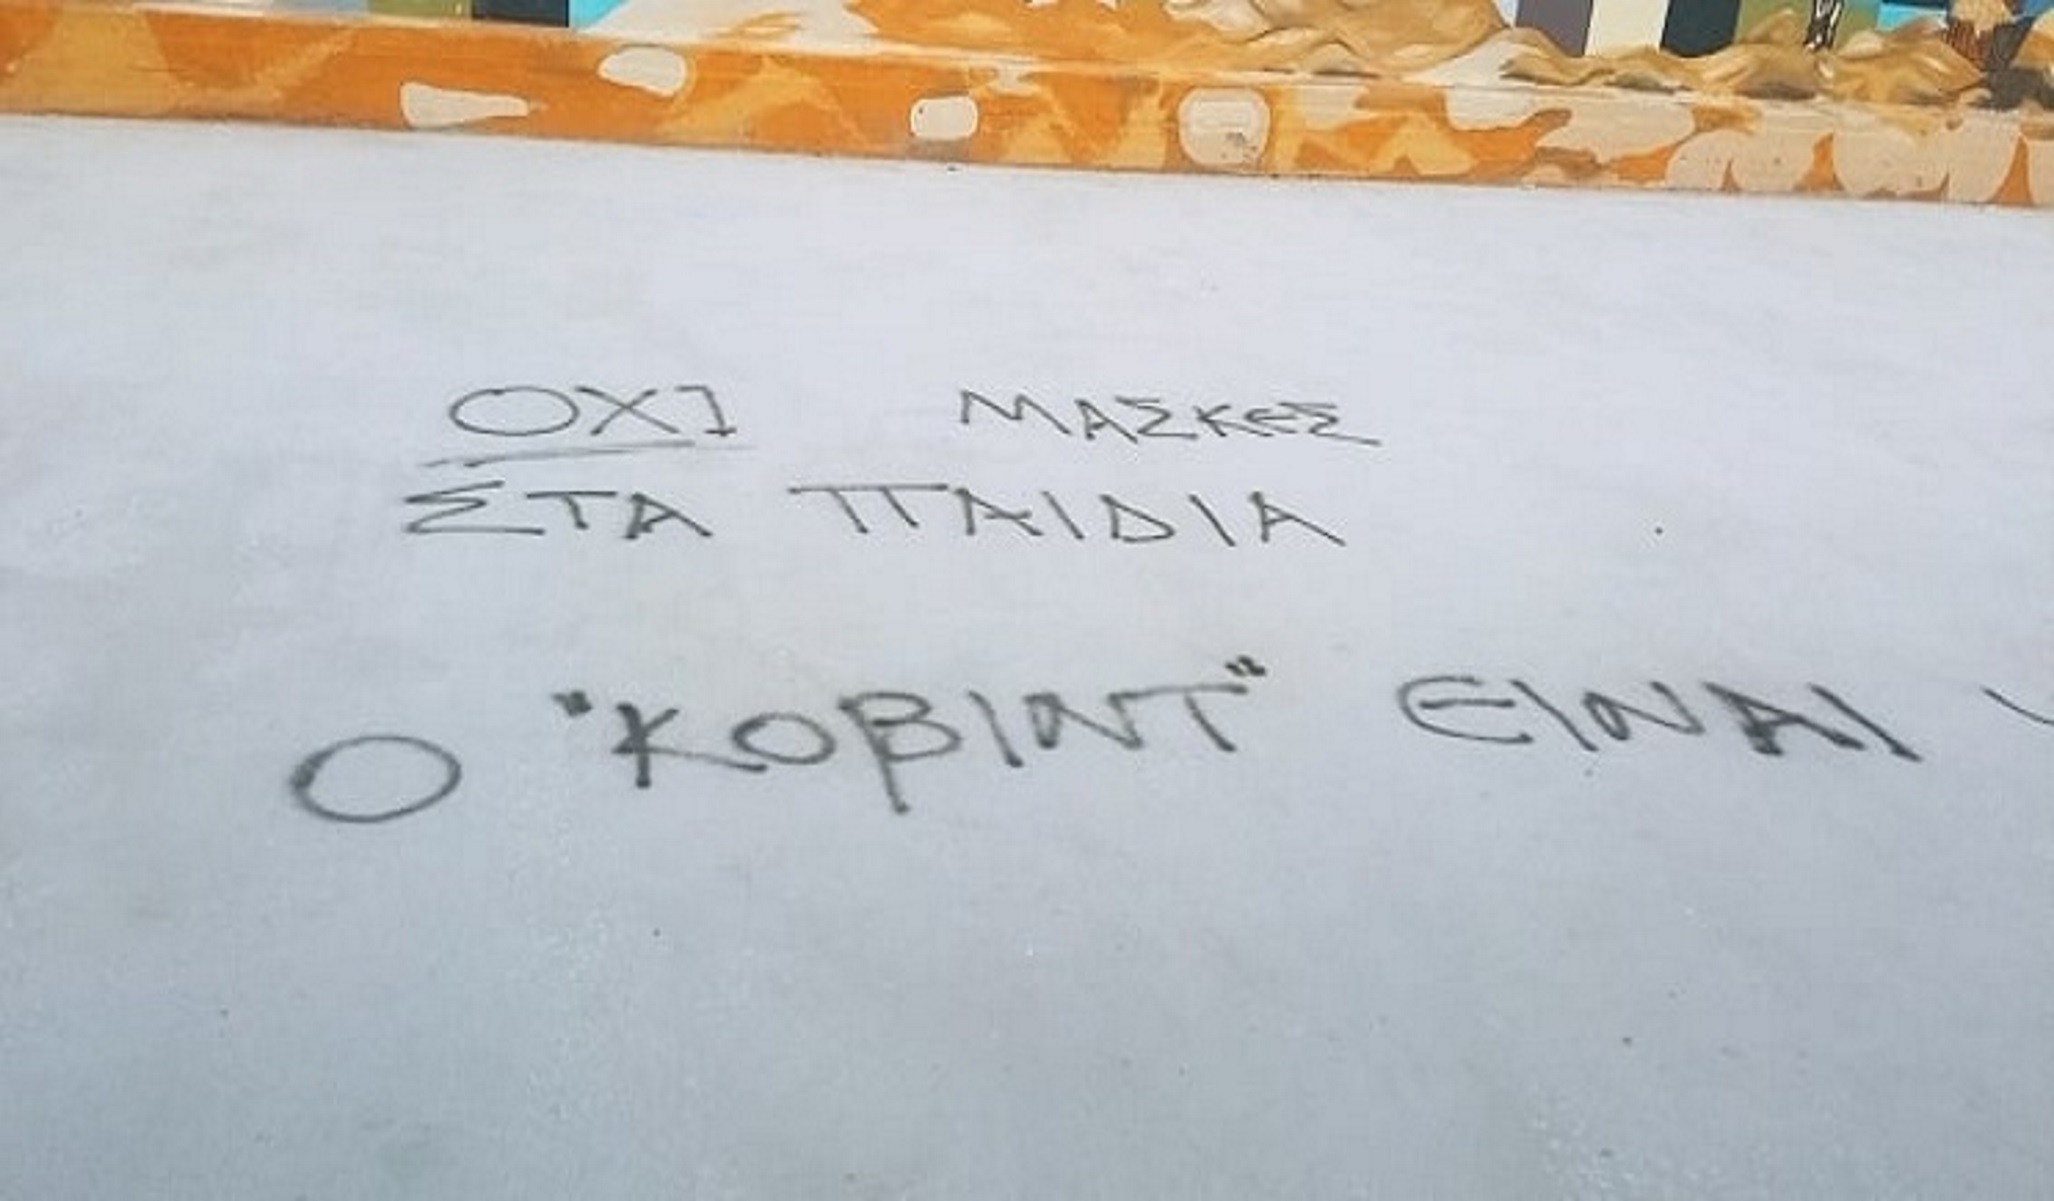 ΟΧΙ ΜΑΣΚΕΣ
ΣΤΑ ΠΑΙΔΙΑ
Ο "ΚΟΒΙΝΤ" ΕΙΝΑΙ